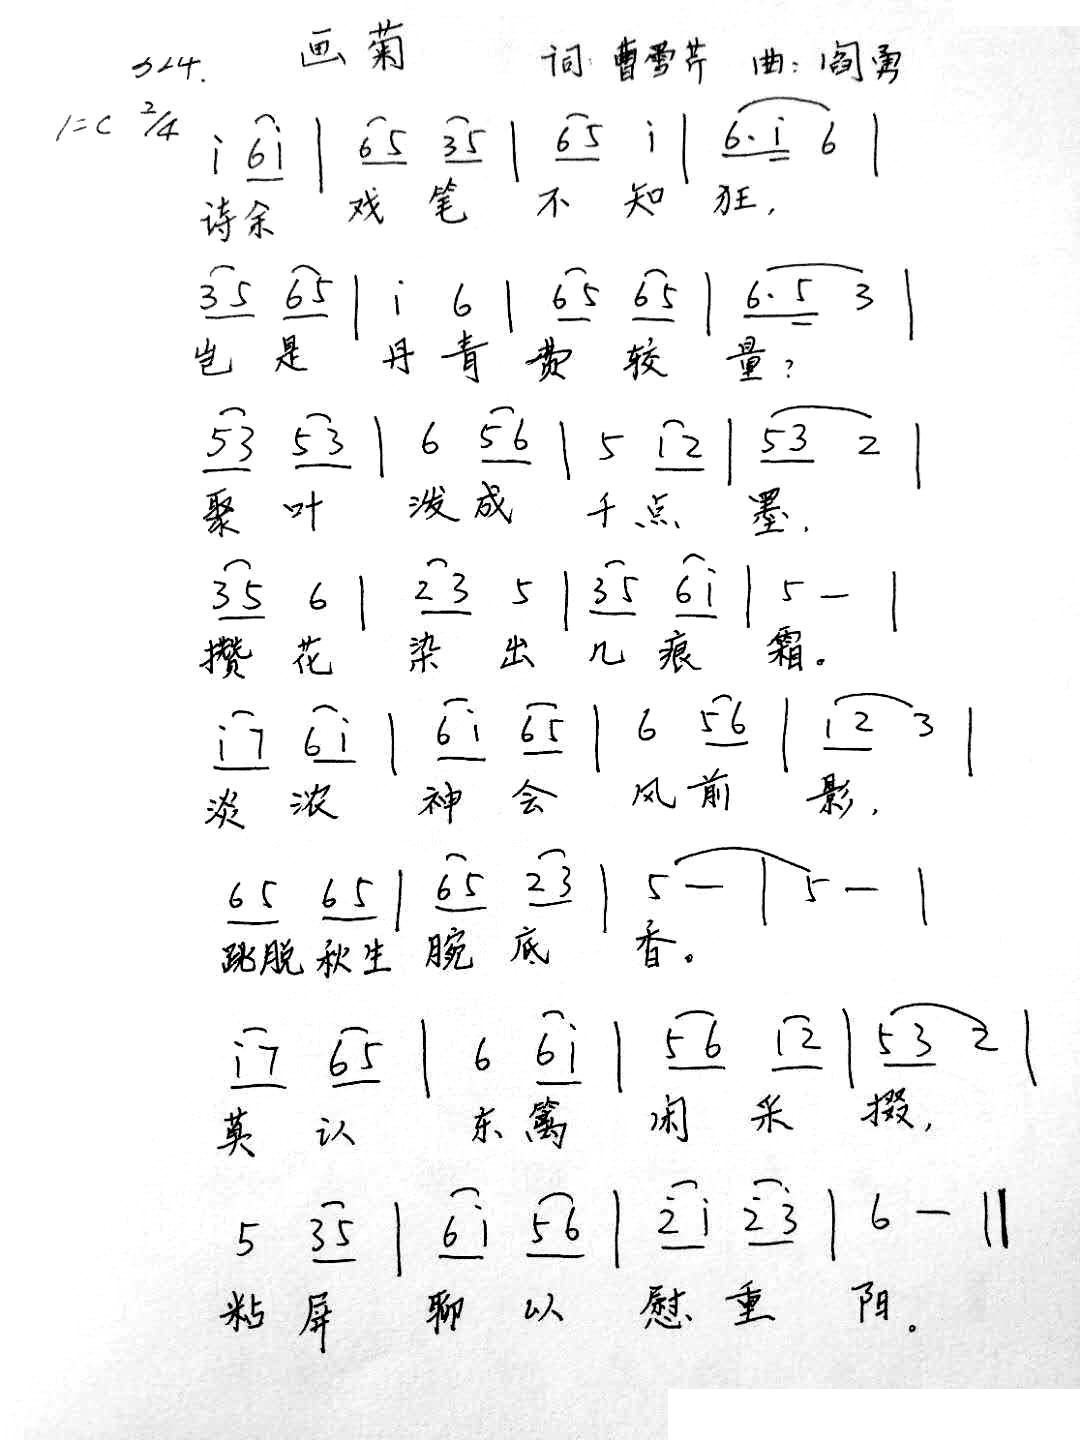 画菊
词:曹雪芹 曲:阎勇
324.
1=C 2/4
i 6i | 65 35 | 65 i | 6·i 6 |
诗余 戏笔 不知 狂,
35 65 | i 6 | 65 65 | 6·5 3 |
岂是 丹青 费较 量?
53 53 | 6 56 | 5 i2 | 53 2 |
聚叶 泼成 千点 墨,
35 6 | 23 5 | 35 6i | 5 — |
攒花 染出 几痕 霜。
i7 6i | 6i 65 | 6 56 | i2 3 |
淡浓 神会 风前 影,
65 65 | 65 23 | 5 — | 5 — |
跳脱秋生 腕底 香。
i7 65 | 6 6i | 56 i2 | 53 2 |
莫认 东篱 闲采 掇,
5 35 | 6i 56 | 2i 23 | 6 — ||
粘屏 聊以 慰重 阳。